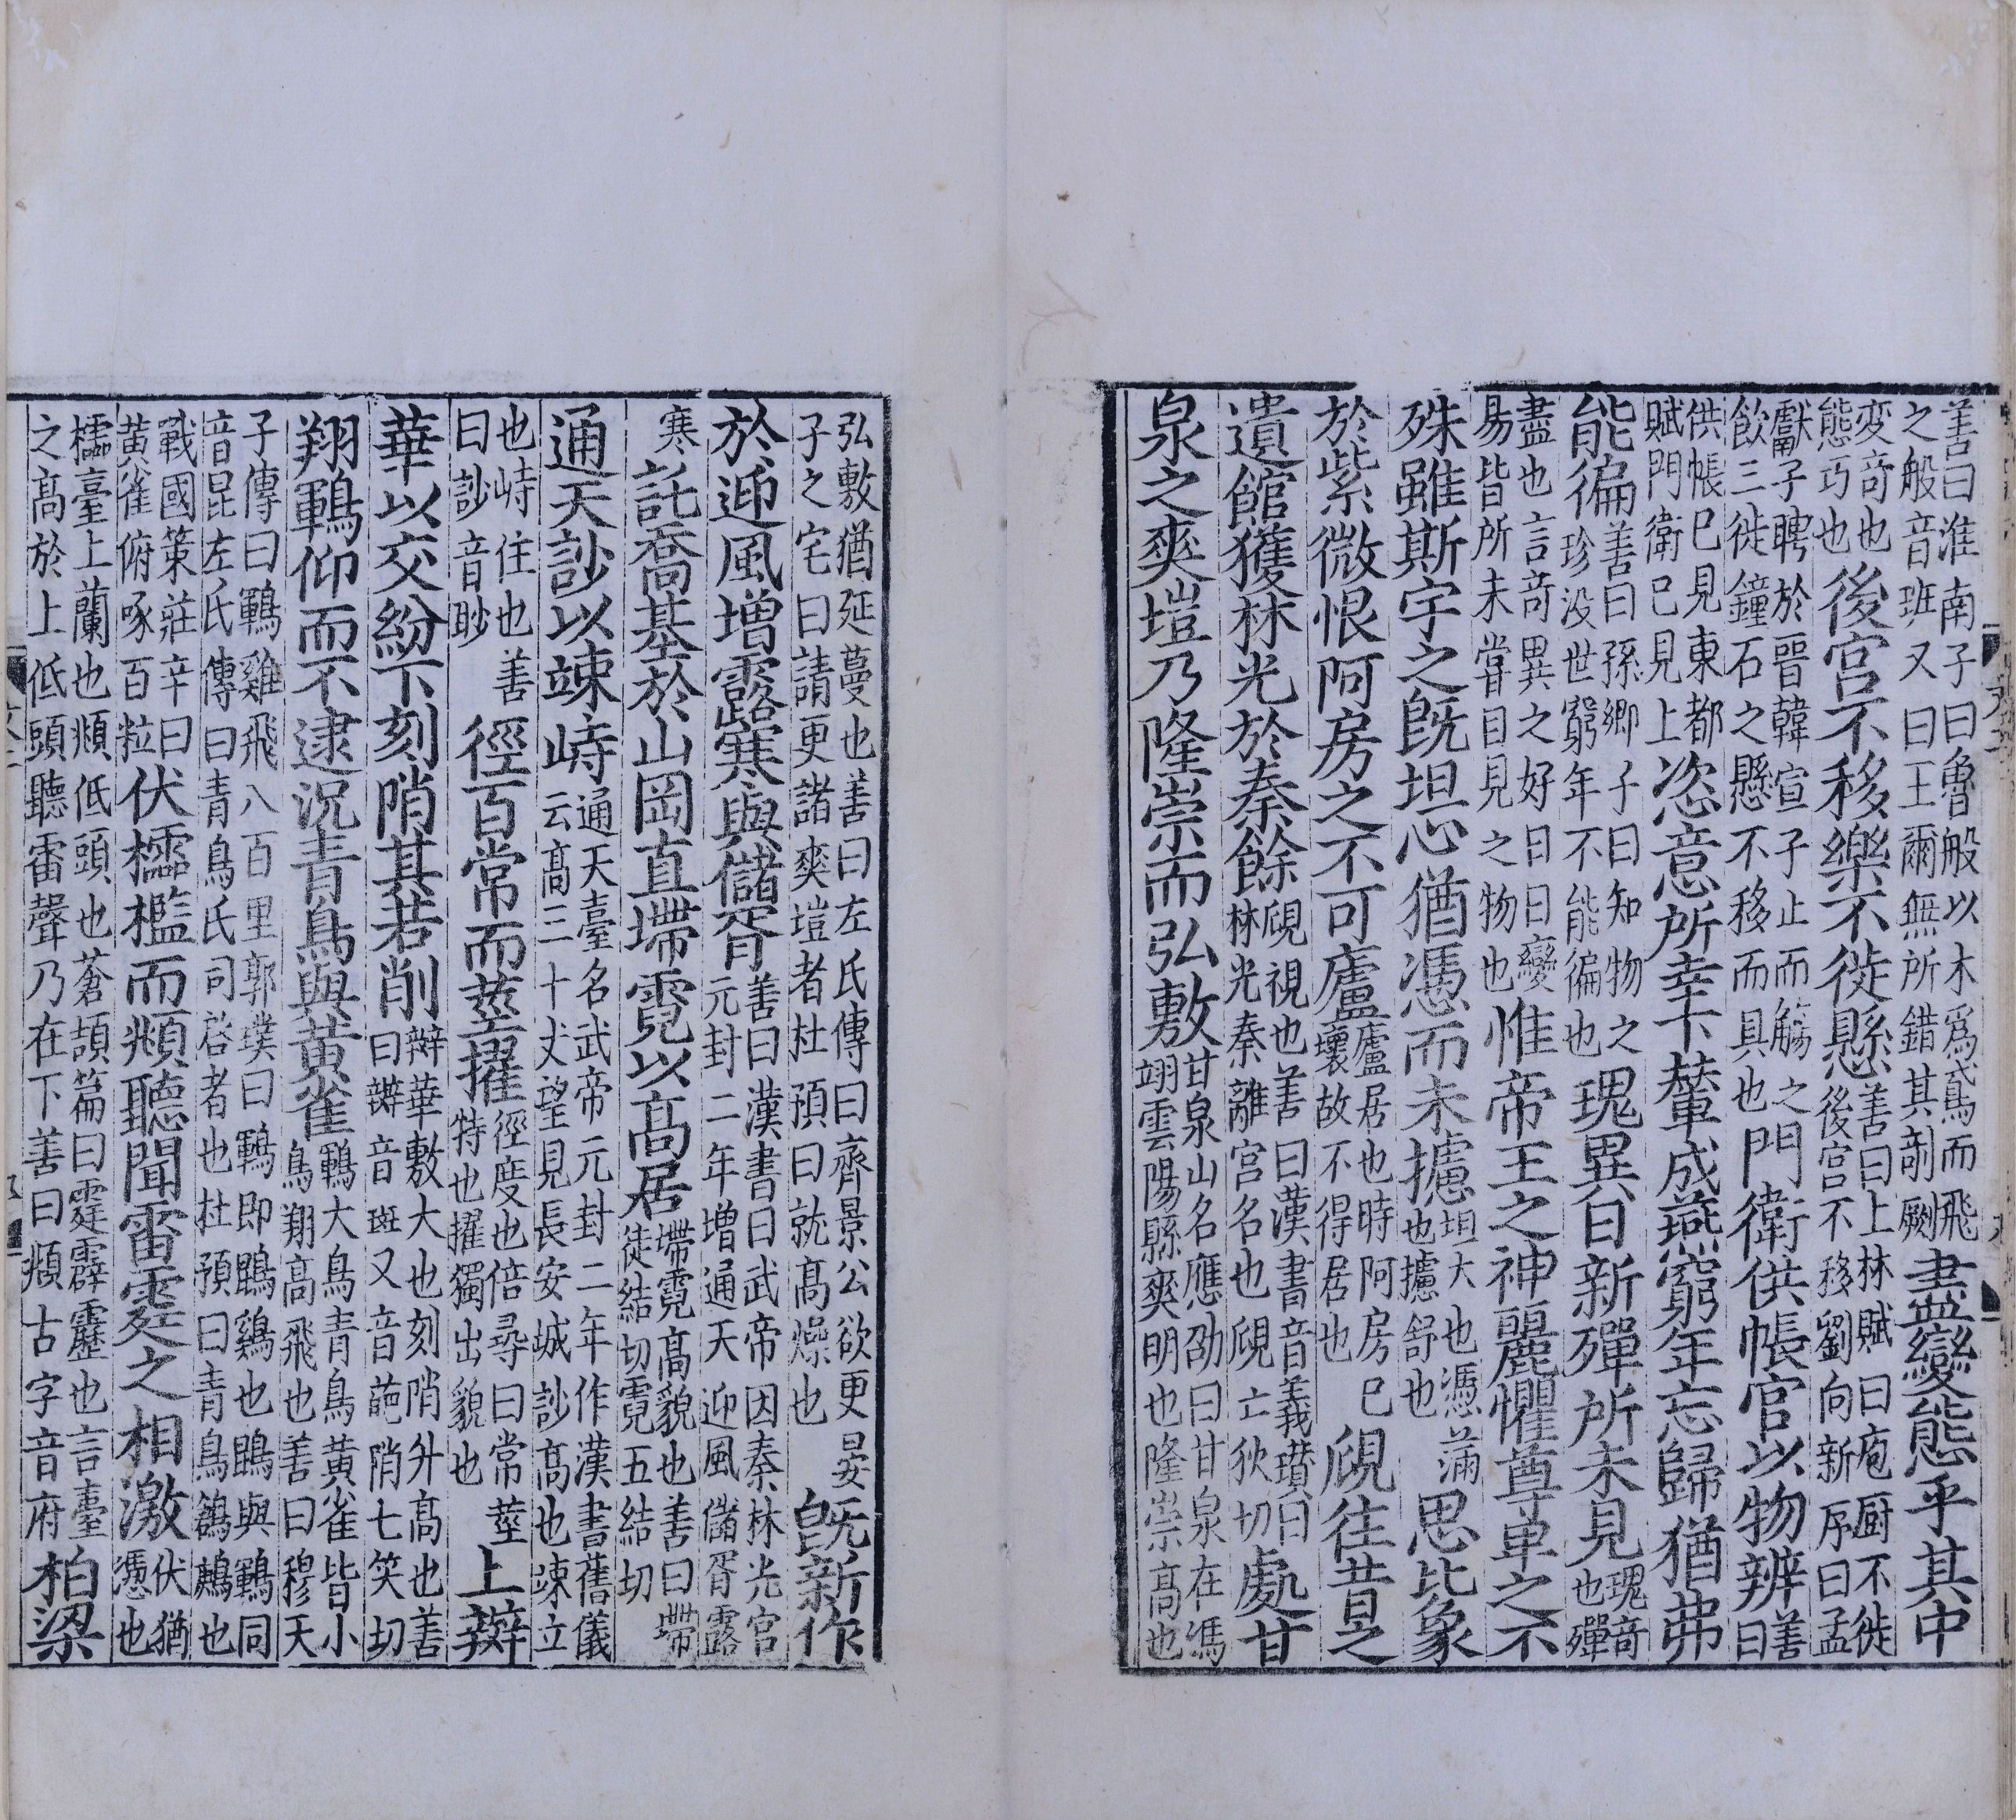 善曰淮南子曰魯般以木爲鳶而飛之般音班又曰王爾無所錯其剞劂盡變態乎其中
変竒也態巧也後宮不移樂不徙懸善曰上林賦曰庖厨不徙後宫不移劉向新序曰孟
獻子聘於晉韓宣子止而觴之飲三徙鐘石之懸不移而具也門衛供帳官以物辨善曰
供帳巳見東都賦門衛巳見上恣意所幸下輦成燕窮年忘歸猶弗
能徧善曰孫卿子曰知物之珍没世窮年不能徧也瑰異日新殫所未見瑰竒也殫
盡也言竒異之好日日變易皆所未甞目見之物也惟帝王之神麗懼尊卑之不
殊雖斯宇之旣坦心猶憑而未攄坦大也憑滿也攄舒也思比象
於紫微恨阿房之不可廬廬居也時阿房巳壞故不得居也覛往昔之
遺館獲林光於秦餘覛視也善曰漢書音義瓉曰林光秦離宫名也覛亡狄切處甘
泉之爽塏乃隆崇而弘敷甘泉山名應劭曰甘泉在馮翊雲陽縣爽明也隆崇髙也
弘敷猶延蔓也善曰左氏傳曰齊景公欲更晏子之宅曰請更諸爽塏者杜預曰就髙燥也旣新作
於迎風增露寒與儲胥善曰漢書曰武帝因秦林光宫元封二年增通天迎風儲胥露
寒託喬基於山岡直墆霓以髙居墆霓髙貌也善曰墆徒結切霓五結切
通天訬以竦峙通天臺名武帝元封二年作漢書舊儀云髙三十丈望見長安城訬髙也竦立
也峙住也善曰訬音眇徑百常而莖擢徑度也倍尋曰常莖特也擢獨出貌也上辬
華以交紛下刻陗其若削辬華敷大也刻陗升髙也善曰辬音斑又音葩陗七笑切
翔鶤仰而不逮況青鳥與黄雀鶤大鳥青鳥黄雀皆小鳥翔髙飛也善曰穆天
子傳曰鶤雞飛八百里郭璞曰鶤即鵾鷄也鵾與鶤同音昆左氏傳曰青鳥氏司啓者也杜預曰青鳥鶬鷃也
戰國策莊辛曰黄雀俯啄百粒伏櫺檻而頫聽聞雷霆之相激伏猶憑也
櫺臺上蘭也頫低頭也蒼頡篇曰霆霹靂也言臺之髙於上低頭聽雷聲乃在下善曰頫古字音府柏梁